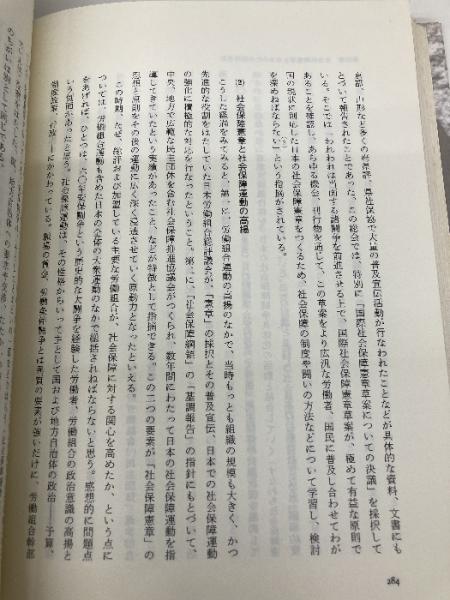 京都、山形など多くの府県評、県社保協で大量の普及宣伝活動が行なわれたことなどが具体的な資料、文書にも
とづいて報告されたことであった。この総会では、特別に「国際社会保障憲章草案についての決議」を採択して
いる。そこでは「われわれは当面する諸闘争を前進させる上で、国際社会保障憲章草案が、極めて有益な原則で
あることを確認し、あらゆる機会、刊行物を通じて、この草案をより広汎な労働者、国民に普及し合わせてわが
国の現状に則応した日本の社会保障憲章をつくるため、社会保障の制度や闘いの方法などについて学習し、検討
を深めねばならない」という指摘がされている。
(2) 社会保障憲章と社会保障運動の高揚
こうした経過をみてみると、第一に、労働組合運動の高揚のなかで、当時もっとも組織の規模も大きく、かつ
先進的な役割をはたしていた日本労働組合総評議会が、「憲章」の採択とその普及宣伝、日本での社会保障運動
の強化に積極的な対応を行なったということ。第二に、「社会保障綱領」の「基調報告」の指針にもとづいて、
中央、地方で広範な民主団体を含む社会保障推進協議会がつくられ、数年間にわたって日本の社会保障運動を指
導してきていたという実績があったこと、などが特徴として指摘できる。この二つの要素が「社会保障憲章」の
思想と原則をその後の運動に広く深く浸透させていく原動力となったといえる。
この時期、なぜ、総評および加盟している主要な労働組合が、社会保障に対する関心を高めたか、という点に
ついては、労働組合運動も含めた日本の全体の大衆運動のなかで総括されねばならないと思う。感想的に問題点
をあげれば、ひとつは、六〇年安保闘争という歴史的な大闘争を経験した労働者、労働組合の政治意識の高揚と
いう側面があったと思う。社会保障運動は、その性格からいって主として国および地方自治体の政治――予算、
制度政策、行政――にかかわっている。職場の賃金、労働条件闘争とは異質の要素が強いだけに、労働組合幹部
284